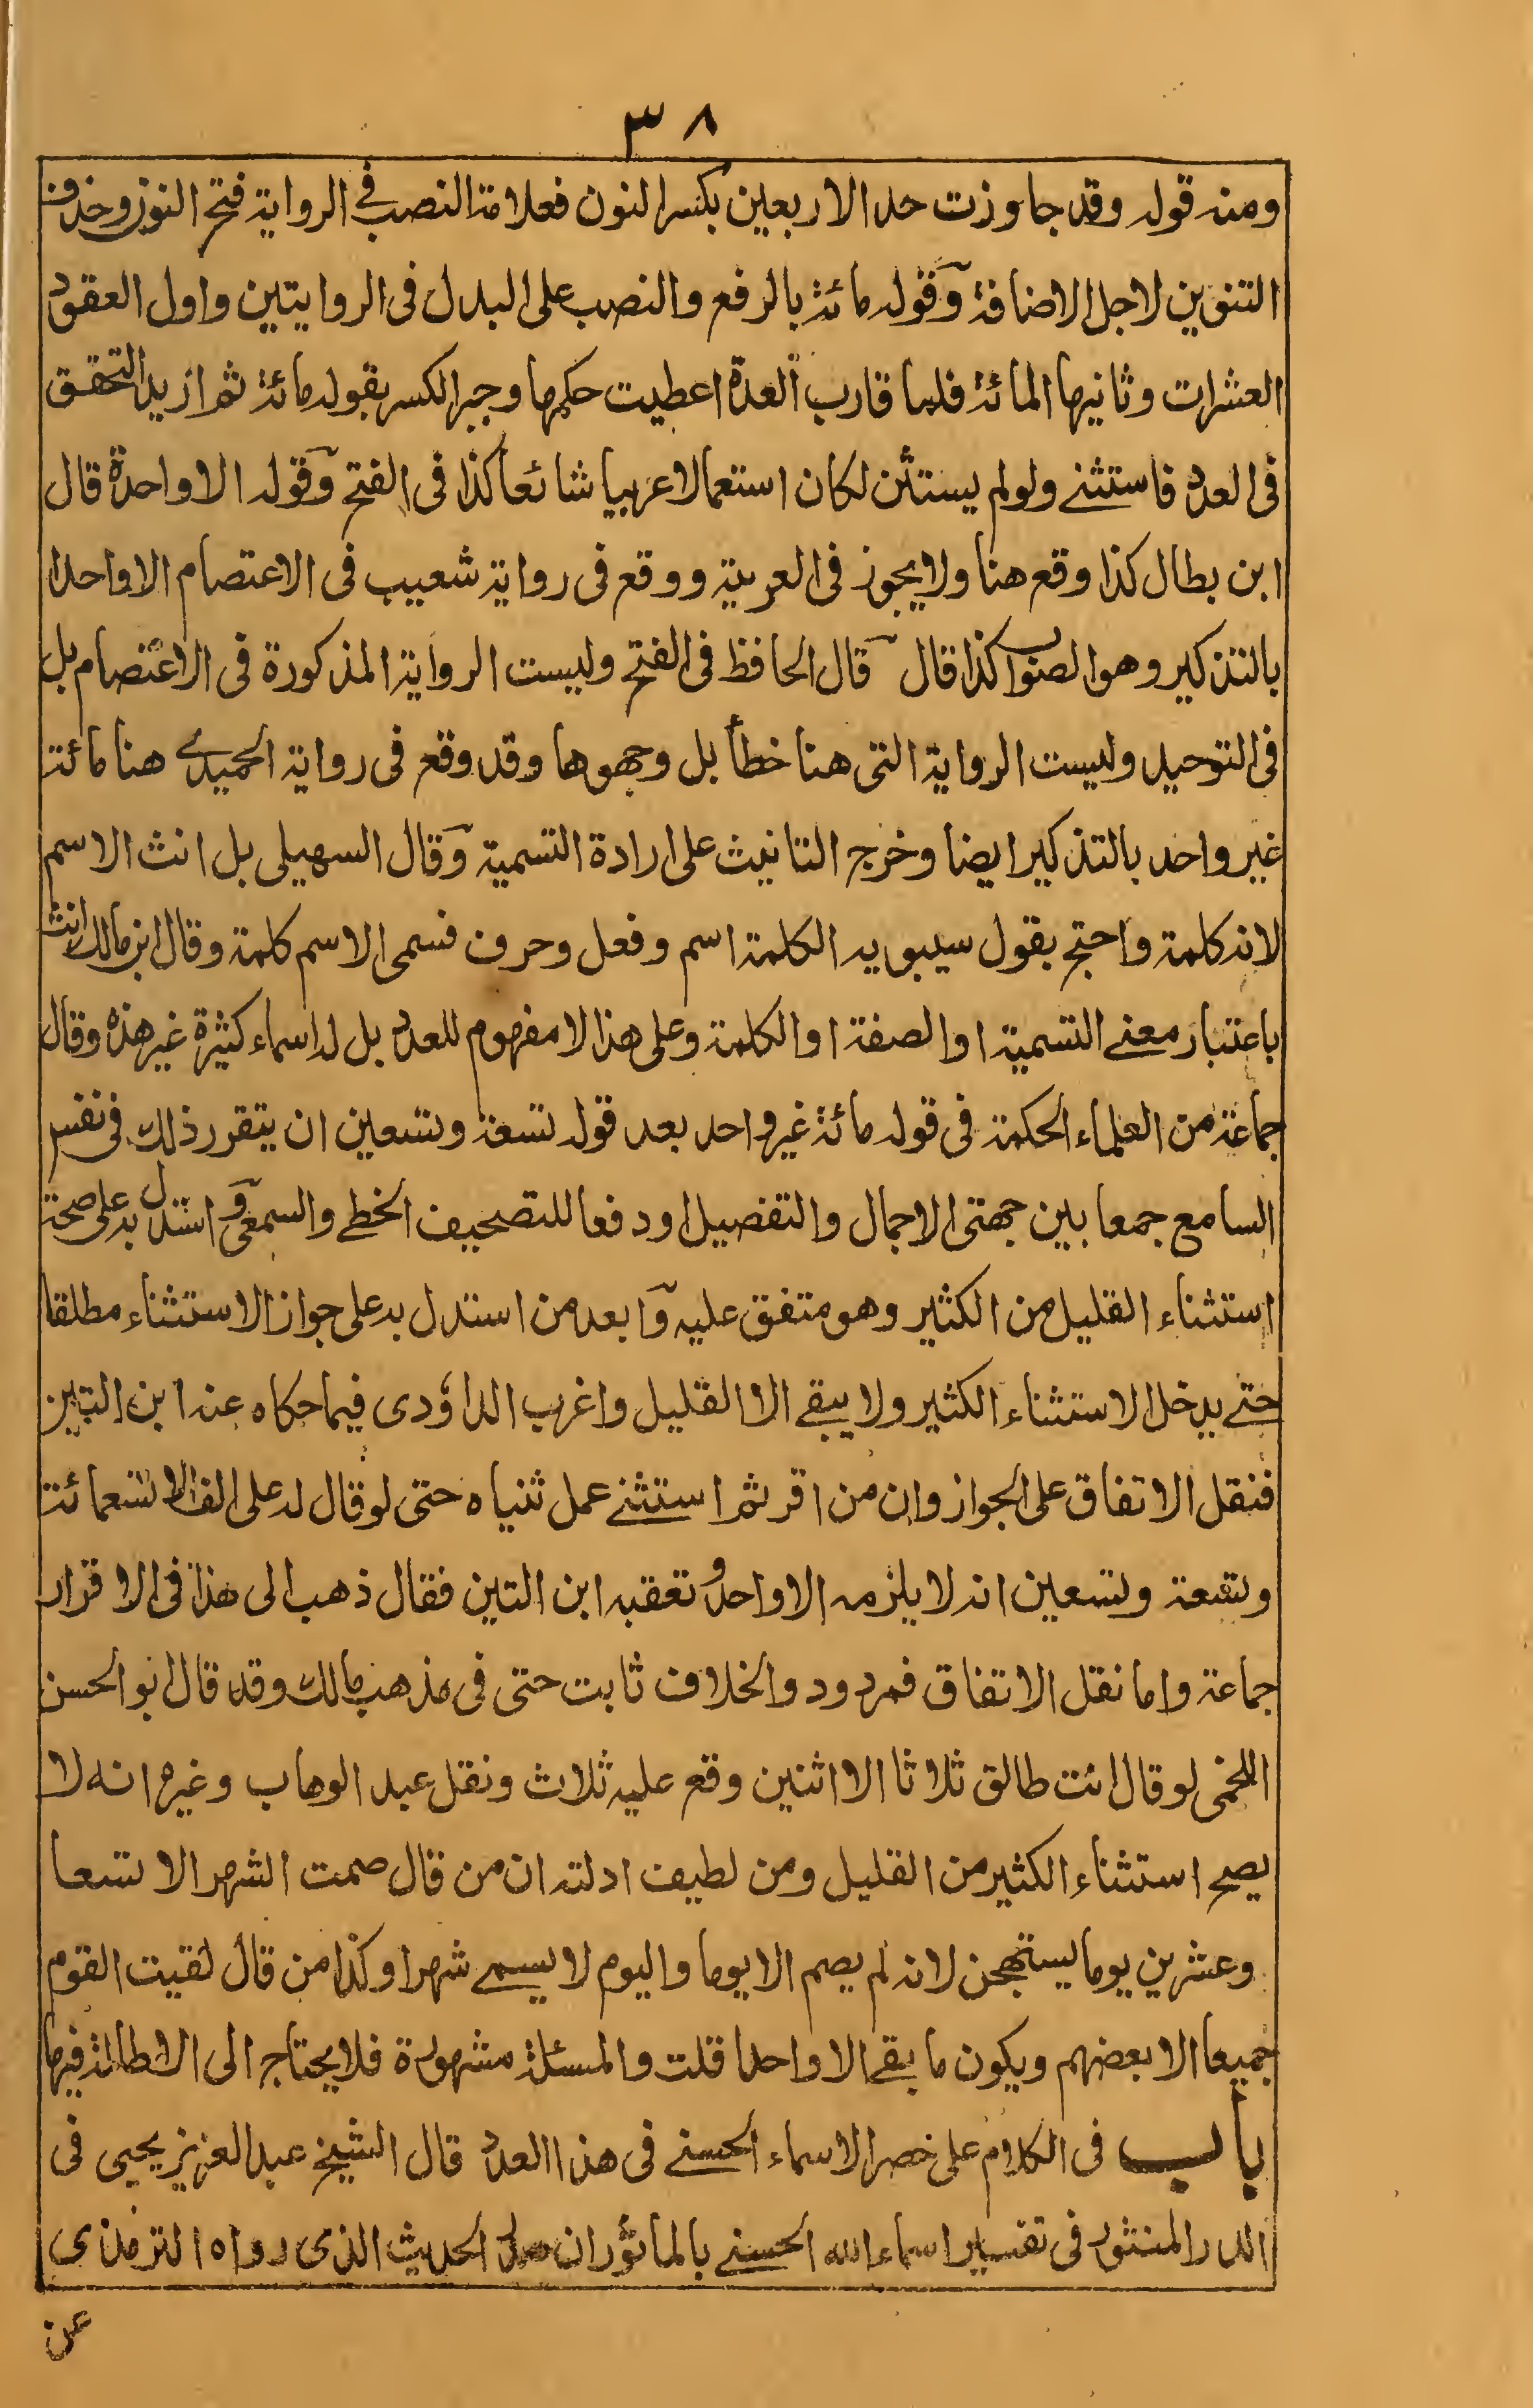 ٣٨
ومنه قوله وقد جاوزت حد الاربعين بكسر النون فعلامة النصب في الرواية فتح النون وحذف
التنوين لاجل الاضافة وقوله مائة بالرفع والنصب على البدل فى الروايتين واول العقود
العشرات وثانيها المائة فلما قارب العدة اعطيت حكمها وجبر الكسر بقوله مائة ثم اريد التحقق
فى العدد فاستثنے ولولم يستثن لكان استعمالا عربيا شائعا كذا فى الفتح وقوله الا واحدة قال
ابن بطال كذا وقع هنا ولا يجوز فى العربية ووقع فى رواية شعيب فى الاعتصام الا واحدا
بالتذكير وهو الصواب كذا قال قال الحافظ فى الفتح وليست الرواية المذكورة فى الاعتصام بل
فى التوحيد وليست الرواية التى هنا خطأ بل وجهوها وقد وقع فى رواية الحميدے هنا مائة
غير واحد بالتذكير ايضا وخرج التانيث على ارادة التسمية وقال السهيلى بل انث الاسم
لانه كلمة واحتج بقول سيبويه الكلمة اسم وفعل وحرف فسمى الاسم كلمة وقال ابن مالك انث
باعتبار معنے التسمية او الصفة او الكلمة وعلى هذا لا مفهوم للعدد بل له اسماء كثيرة غير هذه وقال
جماعة من العلماء الحكمة فى قوله مائة غير واحد بعد قوله تسعة وتسعين ان يتقرر ذلك فى نفس
السامع جمعا بين جهتى الاجمال والتفصيل او دفعا للتصحيف الخطے والسمعى واستدل به على صحة
استثناء القليل من الكثير وهو متفق عليه وابعد من استدل به على جواز الاستثناء مطلقا
حتے يدخل الاستثناء الكثير ولا يبقے الا القليل واغرب الداؤدى فيما حكاه عنه ابن التين
فنقل الاتفاق على الجواز وان من اقر ثم استثنے عمل ثنياه حتى لو قال له على الف الا تسعمائة
وتسعة وتسعين انه لا يلزمه الا واحد وتعقبه ابن التين فقال ذهب الى هذا فى الاقرار
جماعة واما نقل الاتفاق فمردود والخلاف ثابت حتى فى مذهب مالك وقد قال ابو الحسن
اللخمى لو قال انت طالق ثلاثا الا اثنين وقع عليه ثلاث ونقل عبد الوهاب وغيره انه لا
يصح استثناء الكثير من القليل ومن لطيف ادلته ان من قال صمت الشهر الا تسعا
وعشرين يوما يستهجن لانه لم يصم الا يوما واليوم لا يسمے شهرا وكذا من قال لقيت القوم
جميعا الا بعضهم ويكون ما بقے الا واحدا قلت والمسئلة مشهورة فلا يحتاج الى الاطالة فيها
باب فى الكلام على حصر الاسماء الحسنے فى هذا العدد قال الشيخ عبد العزيز يحيى فى
الدر المنثور فى تفسير اسماء الله الحسنے بالمأثور ان الحديث الذى رواه الترمذي
عن